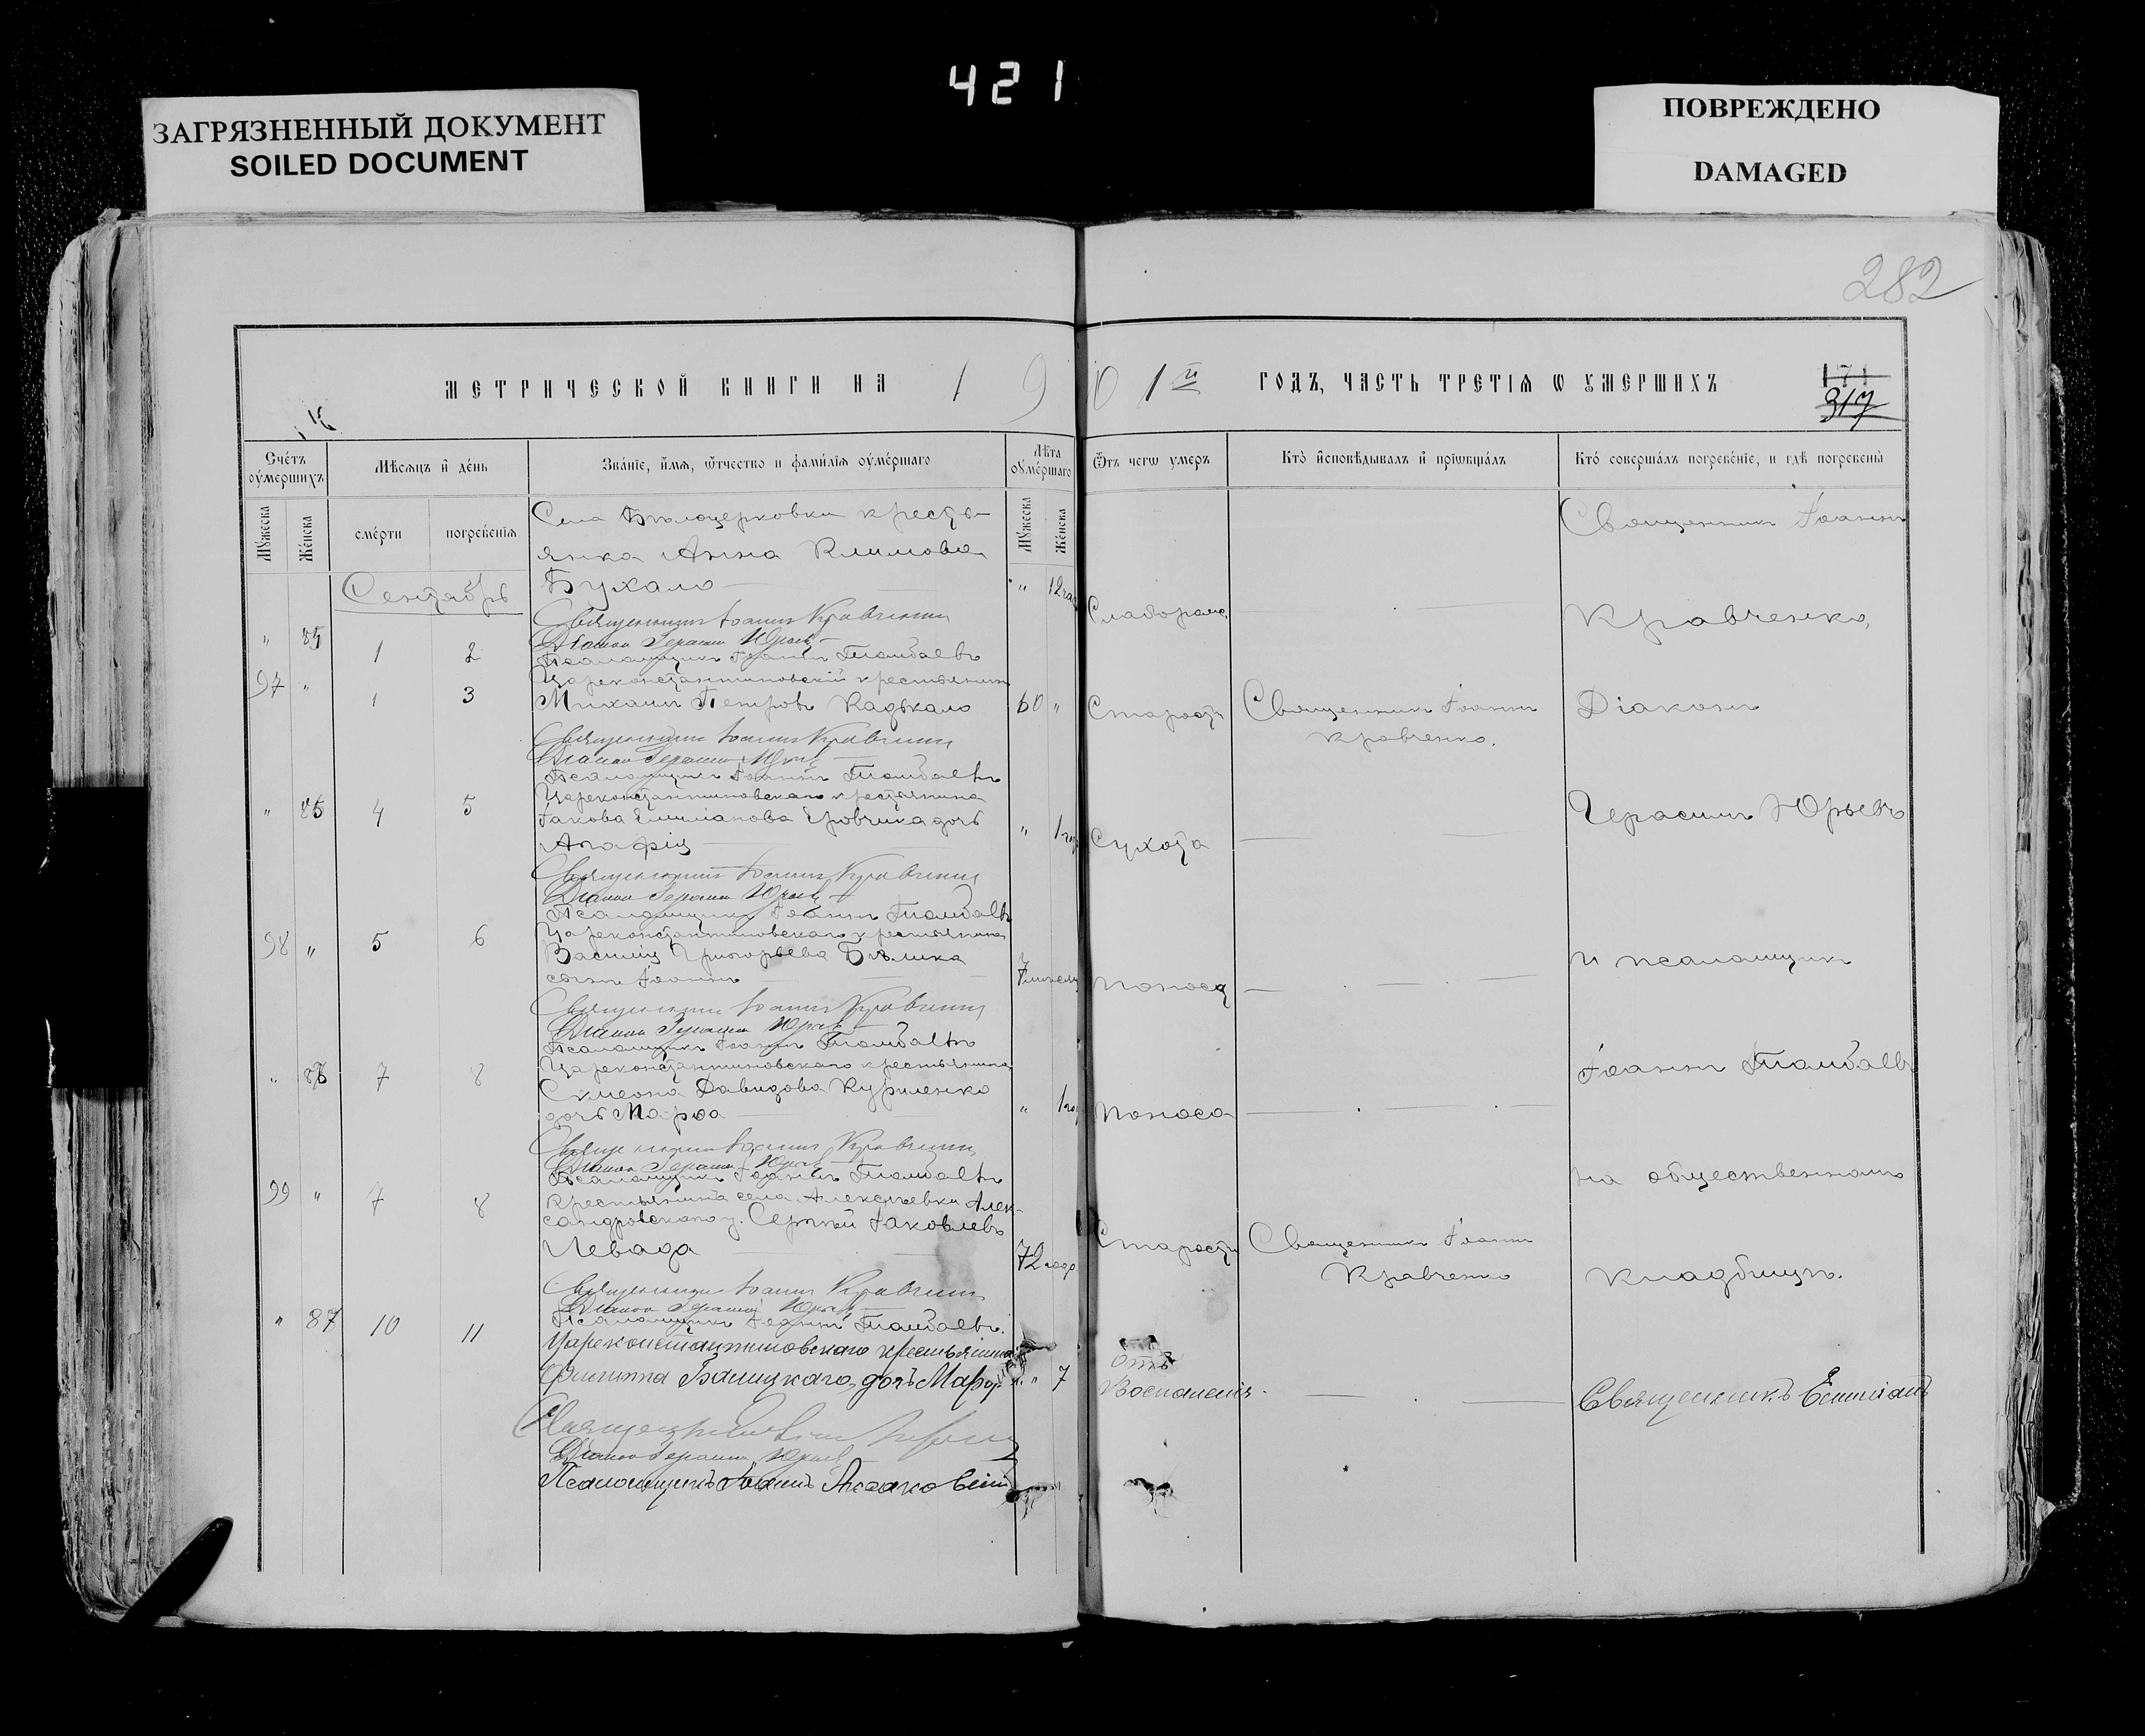 421
ЗАГРЯЗНЕННЫЙ ДОКУМЕНТ
SOILED DOCUMENT
ПОВРЕЖДЕНО
DAMAGED
282
МЕТРИЧЕСКОЙ КНИГИ НА 1901й ГОДЪ, ЧАСТЬ ТРЕТІЯ Ѡ УМЕРШИХЪ
171
317
Счетъ оумершихъ
Мѣсяцъ и день
Званіе, имя, ѿчество и фамилія оумершаго
Лѣта оумершаго
Ѿъ чегѡ умеръ
Кто исповѣдывалъ и пріѡбщалъ
Кто совершалъ погребеніе, и гдѣ погребены
Мужеска Женска смерти погребенія Мужеска Женска
Села Бѣлоцерковки кресть-
янка Анна Климова
Бухало
Сентябрь
" 12
Священникъ Іоаннъ
Кравченко,
Священникъ Іоаннъ Кравченко
Діаконъ Герасимъ Юрьевъ
Псаломщикъ Іоаннъ
" 1 2
97 " 1 3
Цареконстантиновскій крестьянинъ
Михаилъ Петровъ Кадькало
60 "
Старости
Священникъ Іоаннъ
Кравченко.
Діаконъ
Священникъ Іоаннъ Кравченко
Діаконъ Герасимъ Юрьевъ
Псаломщикъ Іоаннъ
" 85 4 5
Цареконстантиновскаго крестьянина
Іакова Емиліанова дочь
Агафія
" 1
Сухота
Герасимъ Юрьевъ
Священникъ Іоаннъ Кравченко
Діаконъ Герасимъ Юрьевъ
Псаломщикъ Іоаннъ
98 " 5 6
Цареконстантиновскаго крестьянина
Василія Григорьева Бѣлика
сынъ Іоаннъ
7
Поноса
и псаломщикъ
Священникъ Іоаннъ Кравченко
Діаконъ Герасимъ Юрьевъ
Псаломщикъ Іоаннъ
" 86 7 8
Цареконстантиновскаго крестьянина
Симеона Давидова Куриленко
дочь Марѳа
" 1
Поноса
Іоаннъ
Священникъ Іоаннъ Кравченко
Діаконъ Герасимъ Юрьевъ
Псаломщикъ Іоаннъ
99 " 7 8
Крестьянинъ села Алексѣевки Алек-
сандровскаго у. Сергѣй Іаковлевъ
Чевада
72 года
Старости
Священникъ Іоаннъ
Кравченко
на общественномъ
кладбищѣ.
Священникъ Іоаннъ Кравченко
Діаконъ Герасимъ Юрьевъ
Псаломщикъ Іоаннъ
" 87 10 11
Цареконстантиновскаго крестьянина
Филиппа Балицкаго дочь
" 7
отъ
Воспаленія
Священникъ Емиліанъ
Діаконъ Герасимъ Юрьевъ
Псаломщикъ Іоаннъ